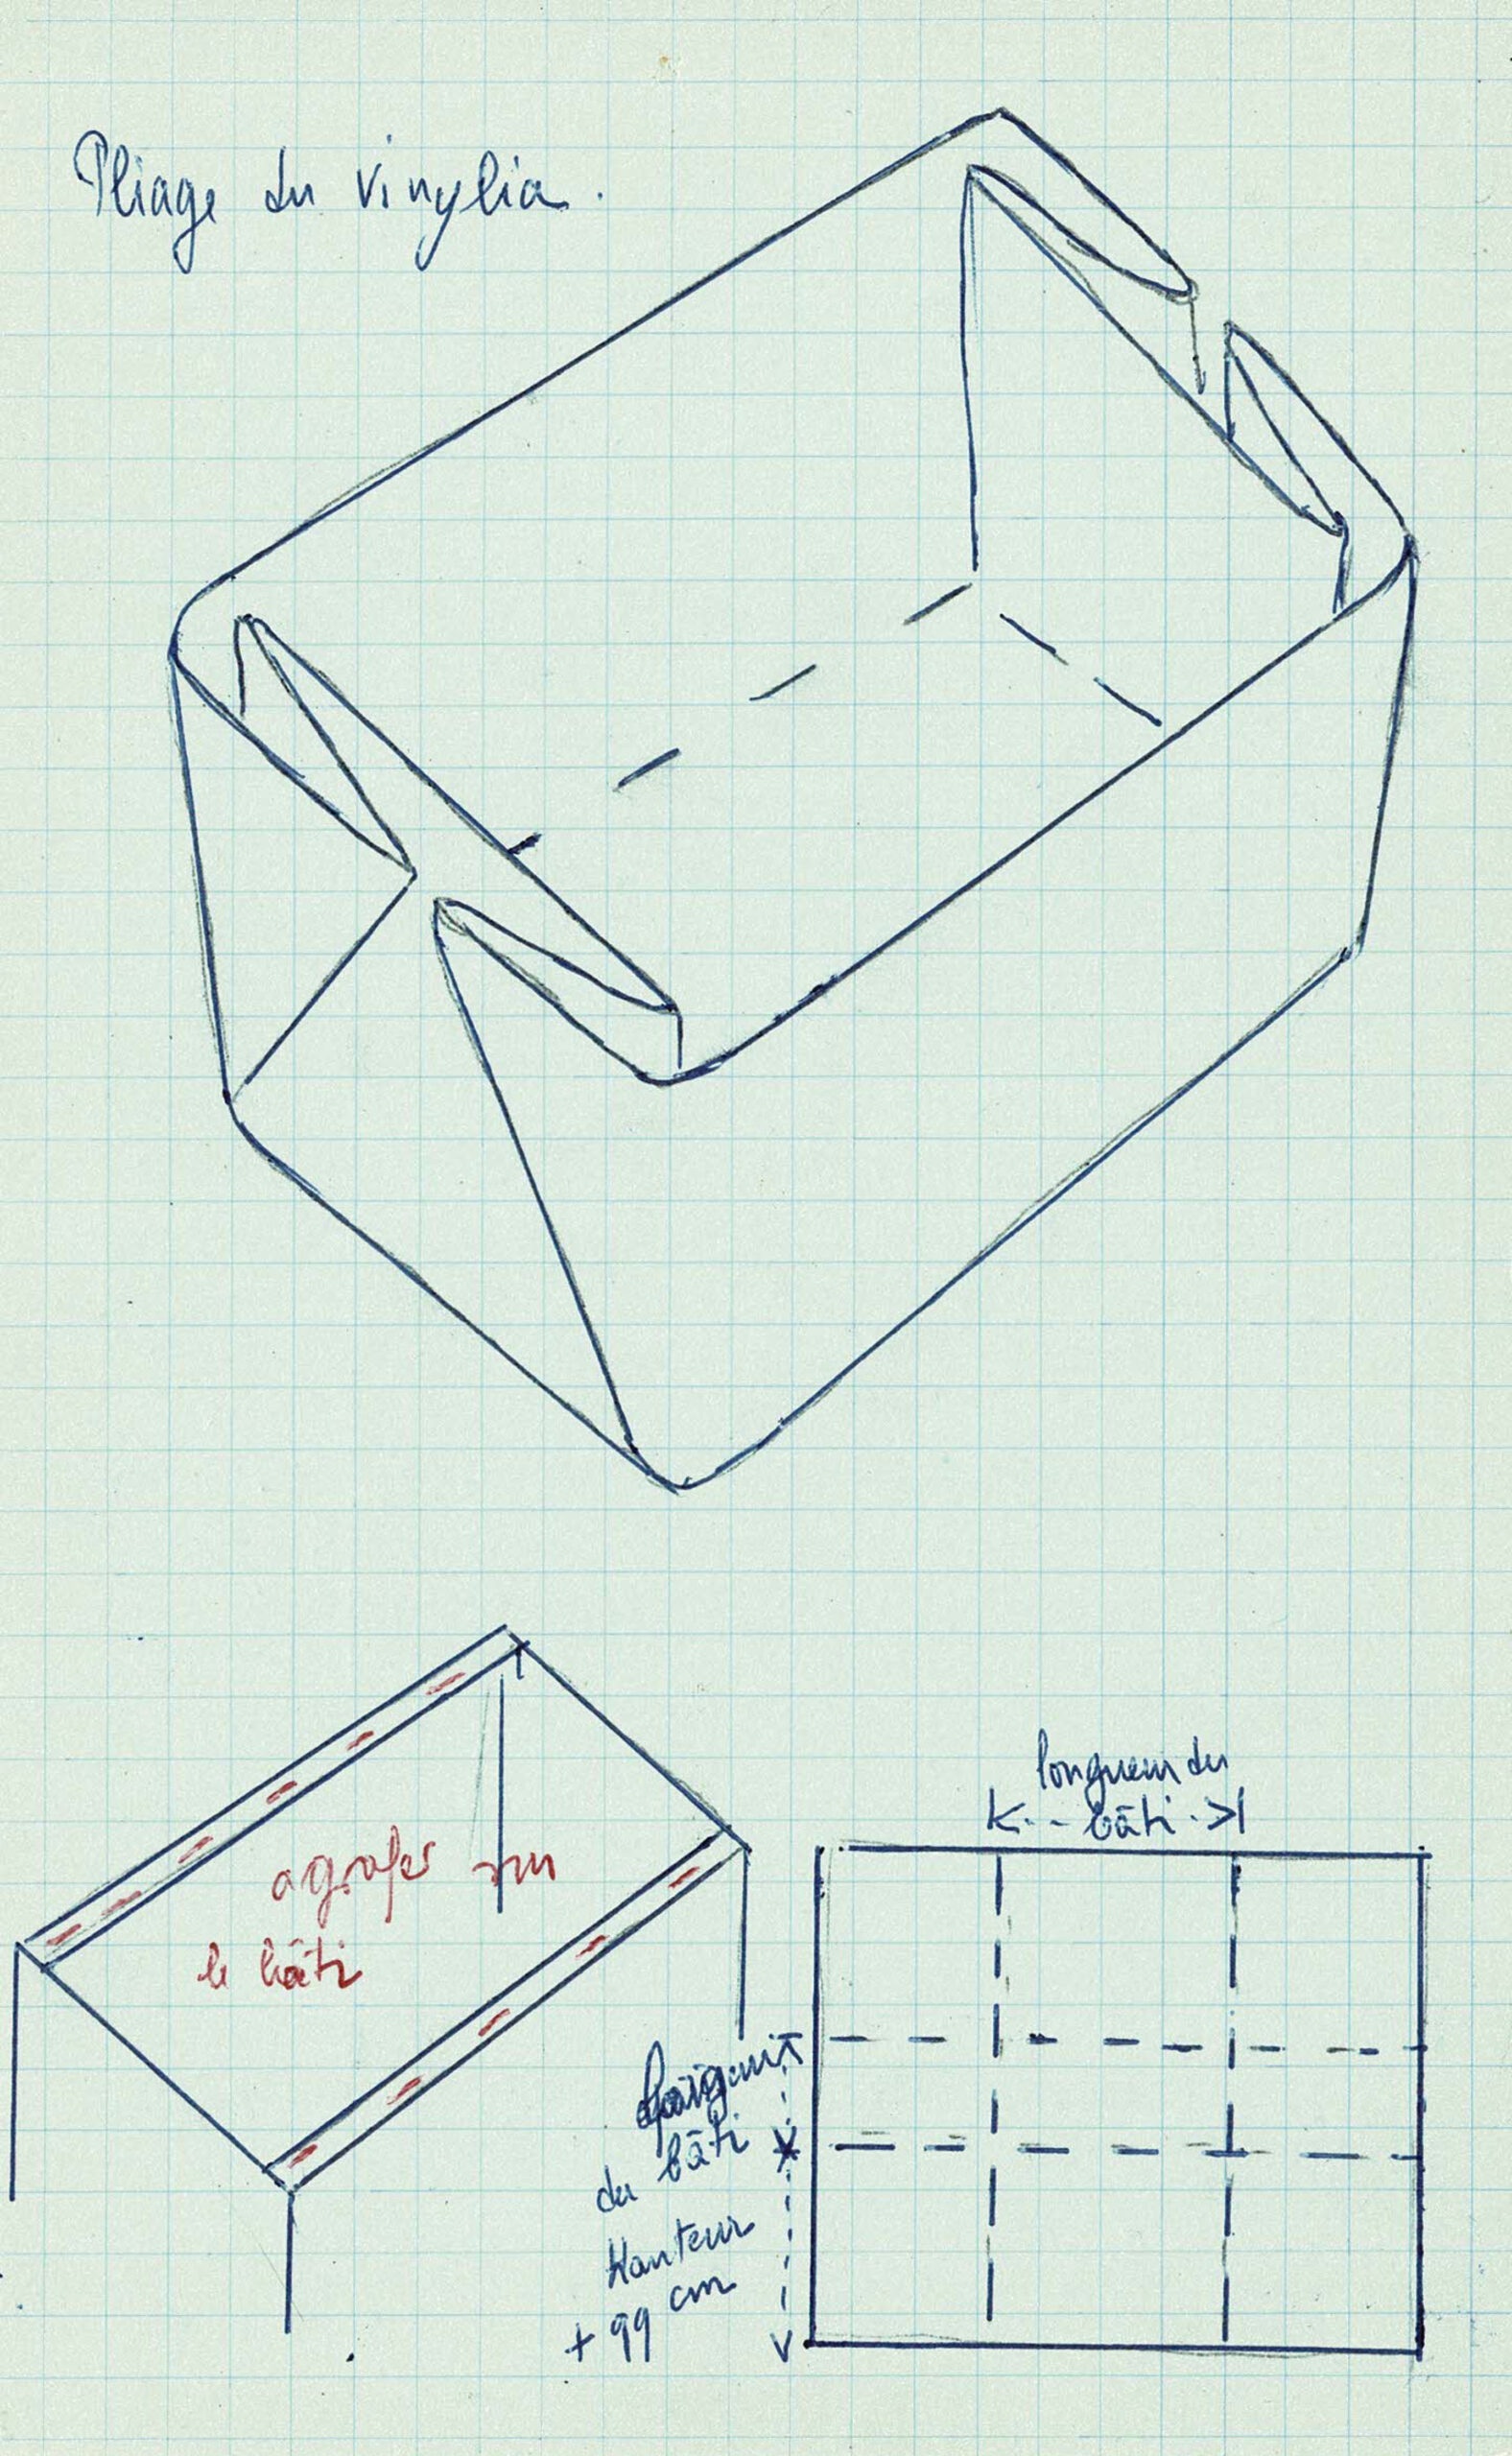 Pliage du vinylia.
agrafer sur
le bâti
longueur du
bâti
du bâti
Hauteur
+ 99 cm